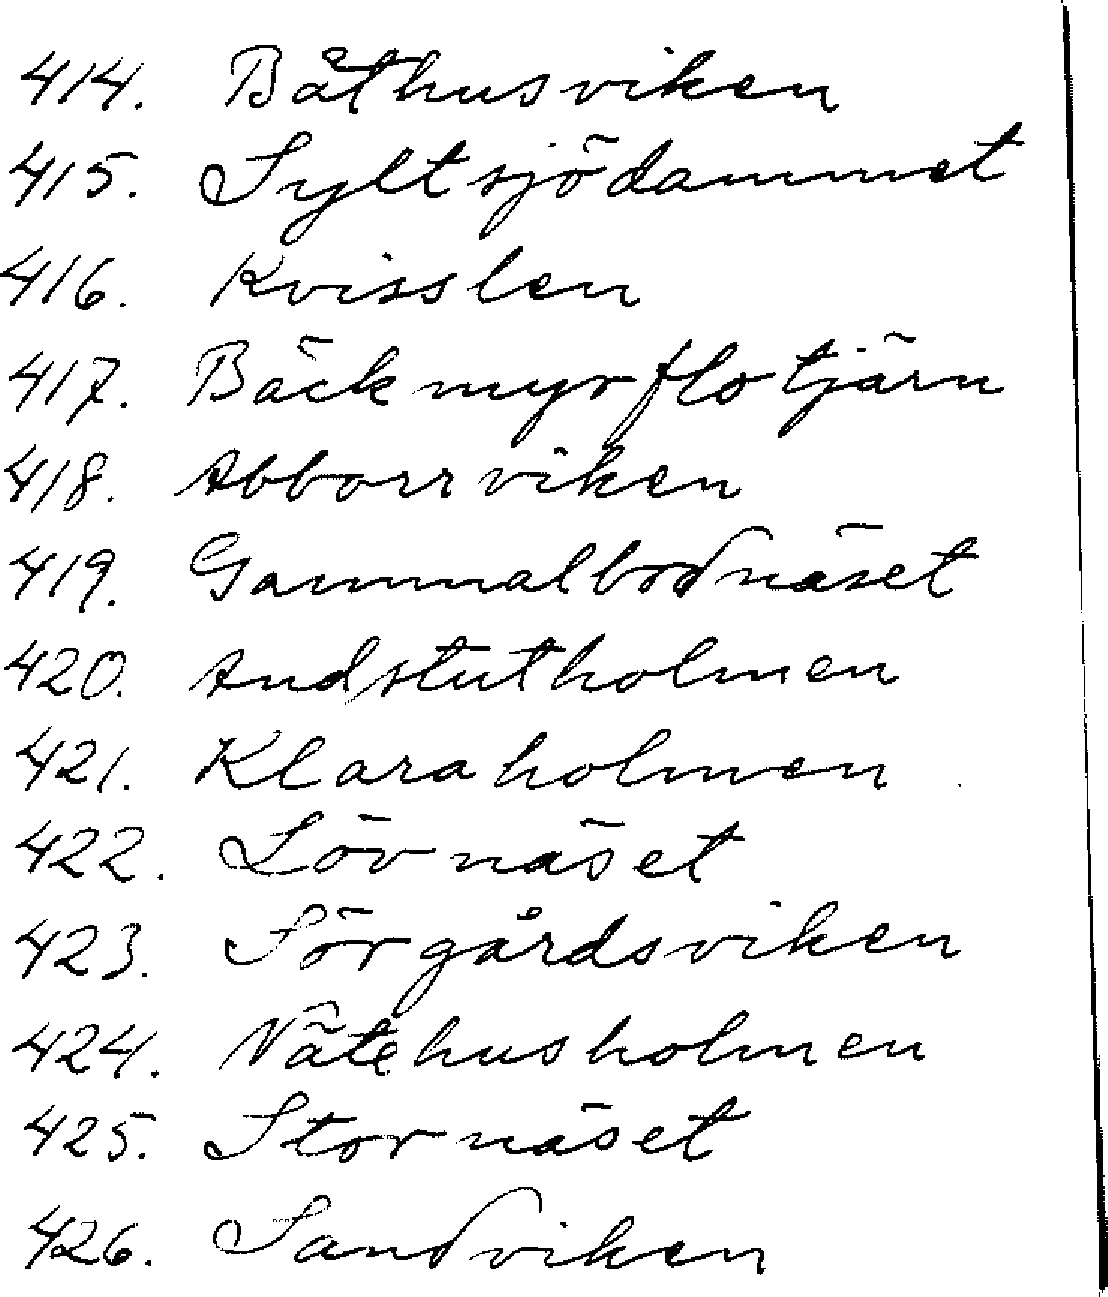 414. Båthusviken
415. Syltsjödammet
416. Kvisslen
417. Bäckmyrflotjärn
418. Abborrviken
419. Gammalbodnäset
420. Andstutholmen
421. Klaraholmen
422. Lövnäset
423. Sörgårdsviken
424. Nätehusholmen
425. Stornäset
426. Sandviken